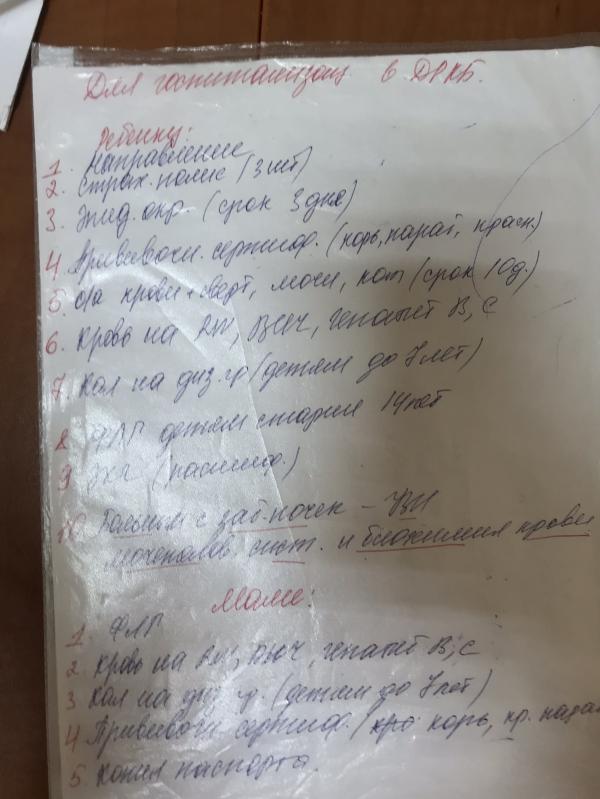 Для госпитализац. в ДРКБ.
Ребенку:
1. Направление
2. Страх. полис (3 шт)
3. Эпид. окр. (срок 3 дня)
4 Прививочн. сертиф. (корь, парат, красн.)
5. о/а крови + сверт, мочи, кал (срок 10 д.)
6. Кровь на RW, ВИЧ, гепатит В, С
7. Кал на диз. гр (детям до 7 лет)
8 ФЛГ детям старше 14 лет
9 ЭКГ (расшифр.)
10. Больным с заб. почек – УЗИ
мочеполов. сист. и биохимия крови
Маме:
1. ФЛГ
2. Кровь на RW, ВИЧ, гепатит В, С
3 Кал на диз. гр. (детям до 7 лет)
4 Прививочн сертиф. (корь, кр.
5. Копия паспорта.